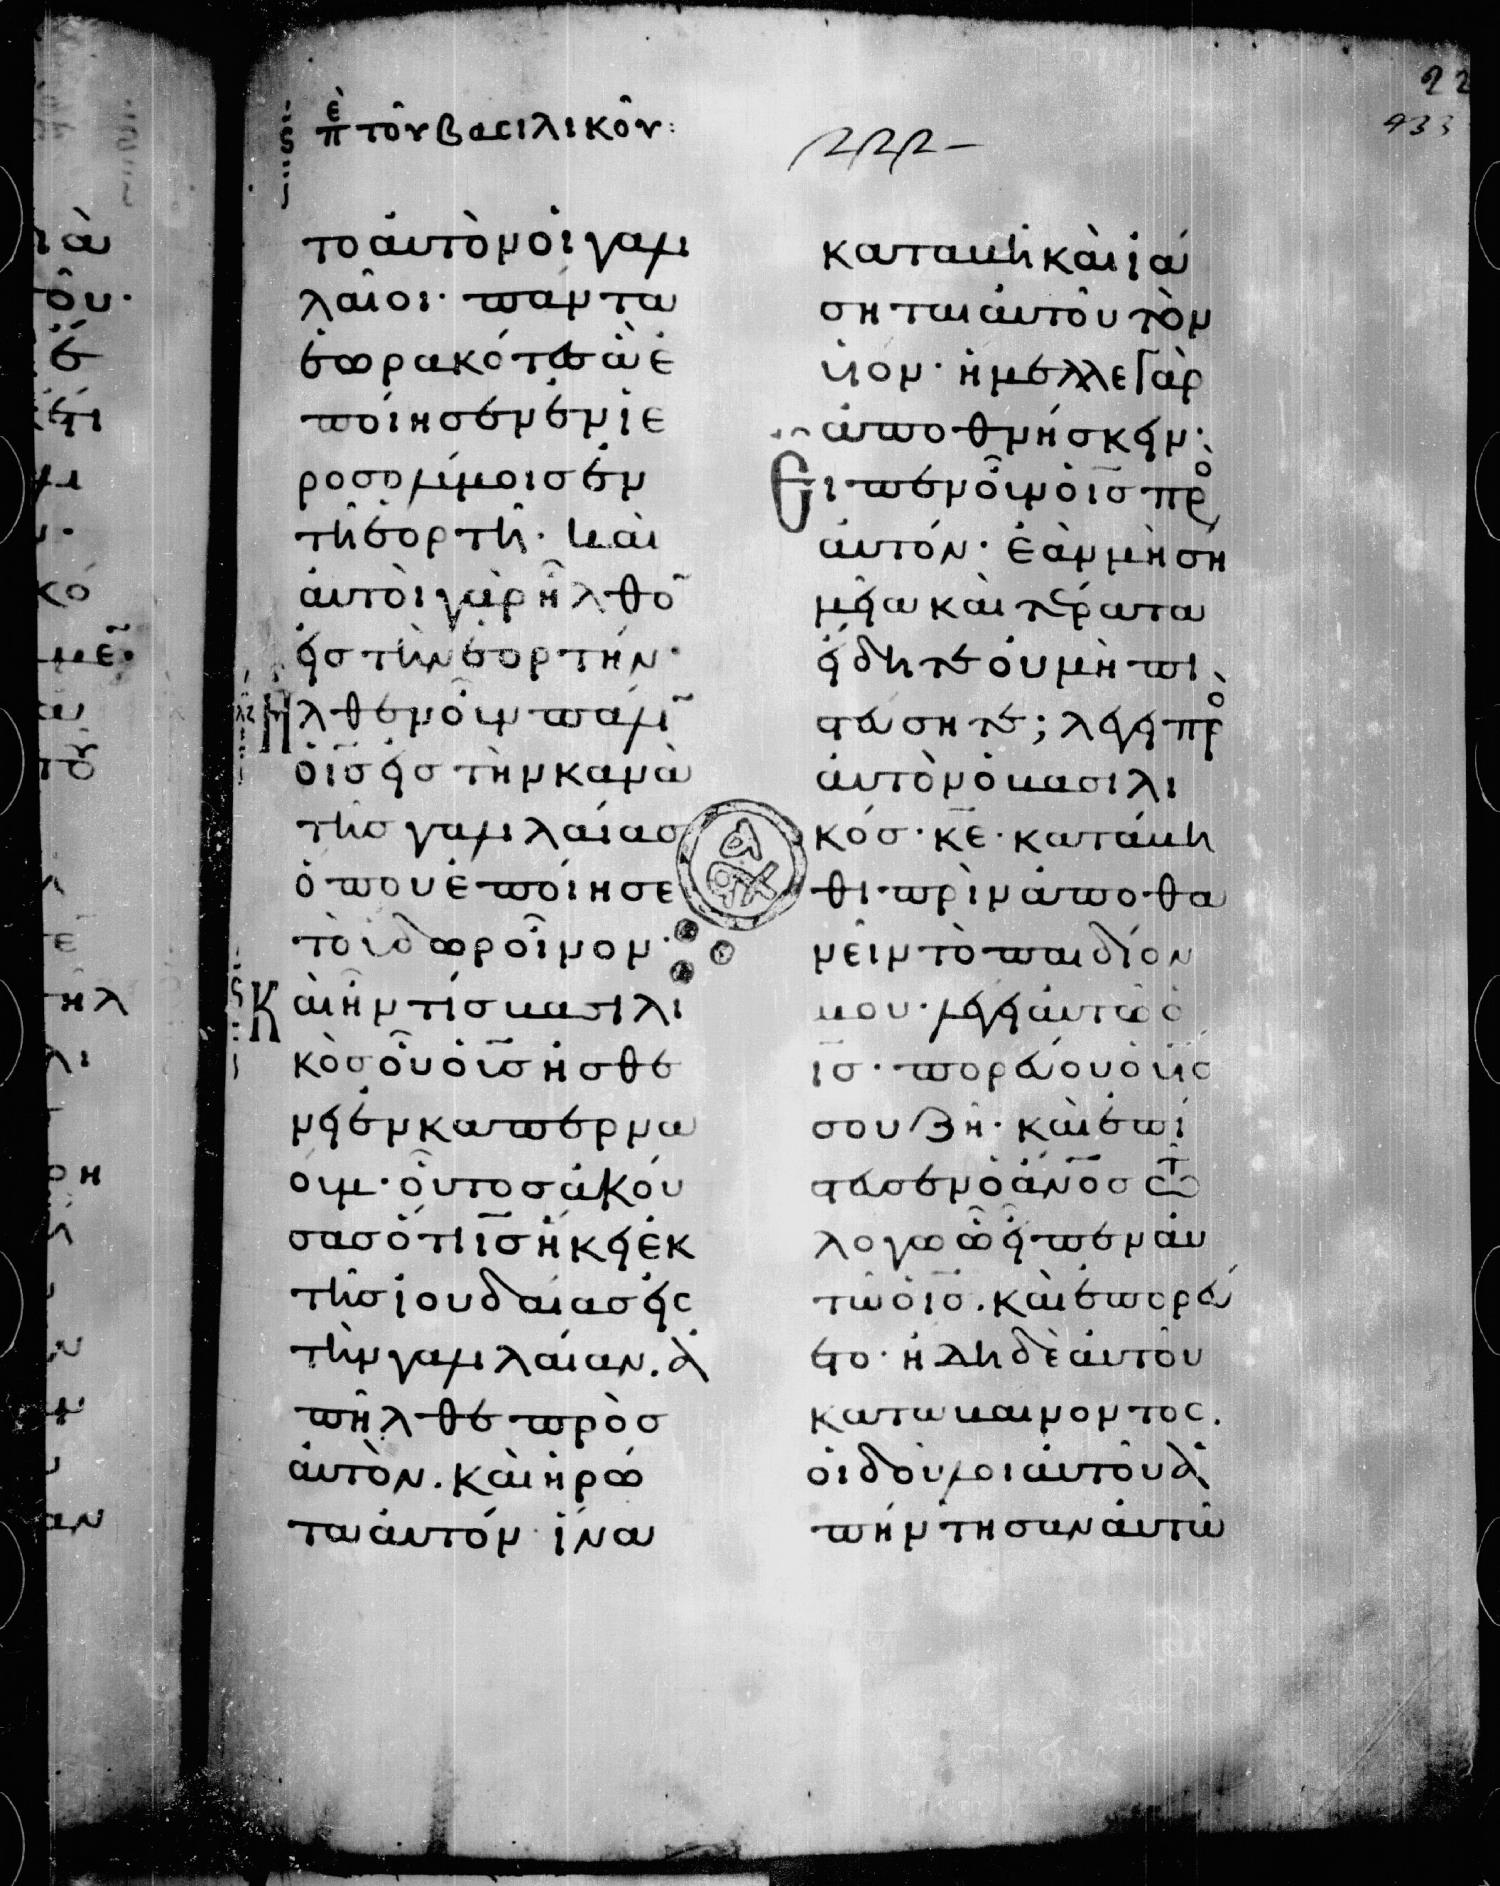 ϛ ἐπ τοῦ βασιλικοῦ:
22
933
το αὐτὸν οἱ γαλι
λαῖοι· πάντα
ἑωρακότες ἃ ἐ
ποίησεν ἐν ἱε
ροσολύμοισ ἐν
τῆ ἑορτῆ· καὶ
αὐτοὶ γὰρ ἦλθο̅
εἰσ τὴν ἑορτήν·
Ἦλθεν οὖν πάλι̅
ὁ ι̅σ̅ εἰσ τὴν κανὰ
τῆσ γαλιλαίασ
ὅπου ἐποίησε
τὸ ὕδωρ οἶνον·
Καὶ ἦν τίσ βασιλι
κὸσ οὗ ὁ υ̅ι̅σ̅ ἠσθέ
νει ἐν καπερνα
ούμ· οὗτοσ ἀκού
σασ ὅτι ι̅σ̅ ἥκει ἐκ
τῆσ ἰουδαίασ εἰσ
τὴν γαλιλαίαν. ἀ
πῆλθε πρὸσ
αὐτὸν. καὶ ἠρώ
τα αὐτόν· ἵνα
καταβῆ καὶ ἰά
σηται αὐτοῦ τὸν
υἱόν· ἤμελλε γὰρ
ἀποθνήσκειν·
Εἶπεν οὖν ὁ ι̅σ̅ πρὸ
αὐτόν· ἐὰν μὴ ση
μεῖα καὶ τέρατα
εἴδητε οὐ μὴ πι
στεύσητε; λέγει πρὸ
αὐτὸν ὁ βασιλι
κόσ· κ̅ε̅· κατάβη
θι πρὶν ἀποθα
νεῖν τὸ παιδίον
μου· λέγει αὐτῶ ὁ
ι̅σ̅· πορεύου ὁ υἱόσ
σου ζῆ· καὶ ἐπί
στευσεν ὁ α̅ν̅ο̅σ̅ τῶ
λόγω ὧ εἶπεν αὐ
τῶ ὁ ι̅σ̅. καὶ ἐπορεύ
ετο· ἤδη δὲ αὐτοῦ
καταβαίνοντοσ.
οἱ δοῦλοι αὐτοῦ ἀ
πήντησαν αὐτῶ